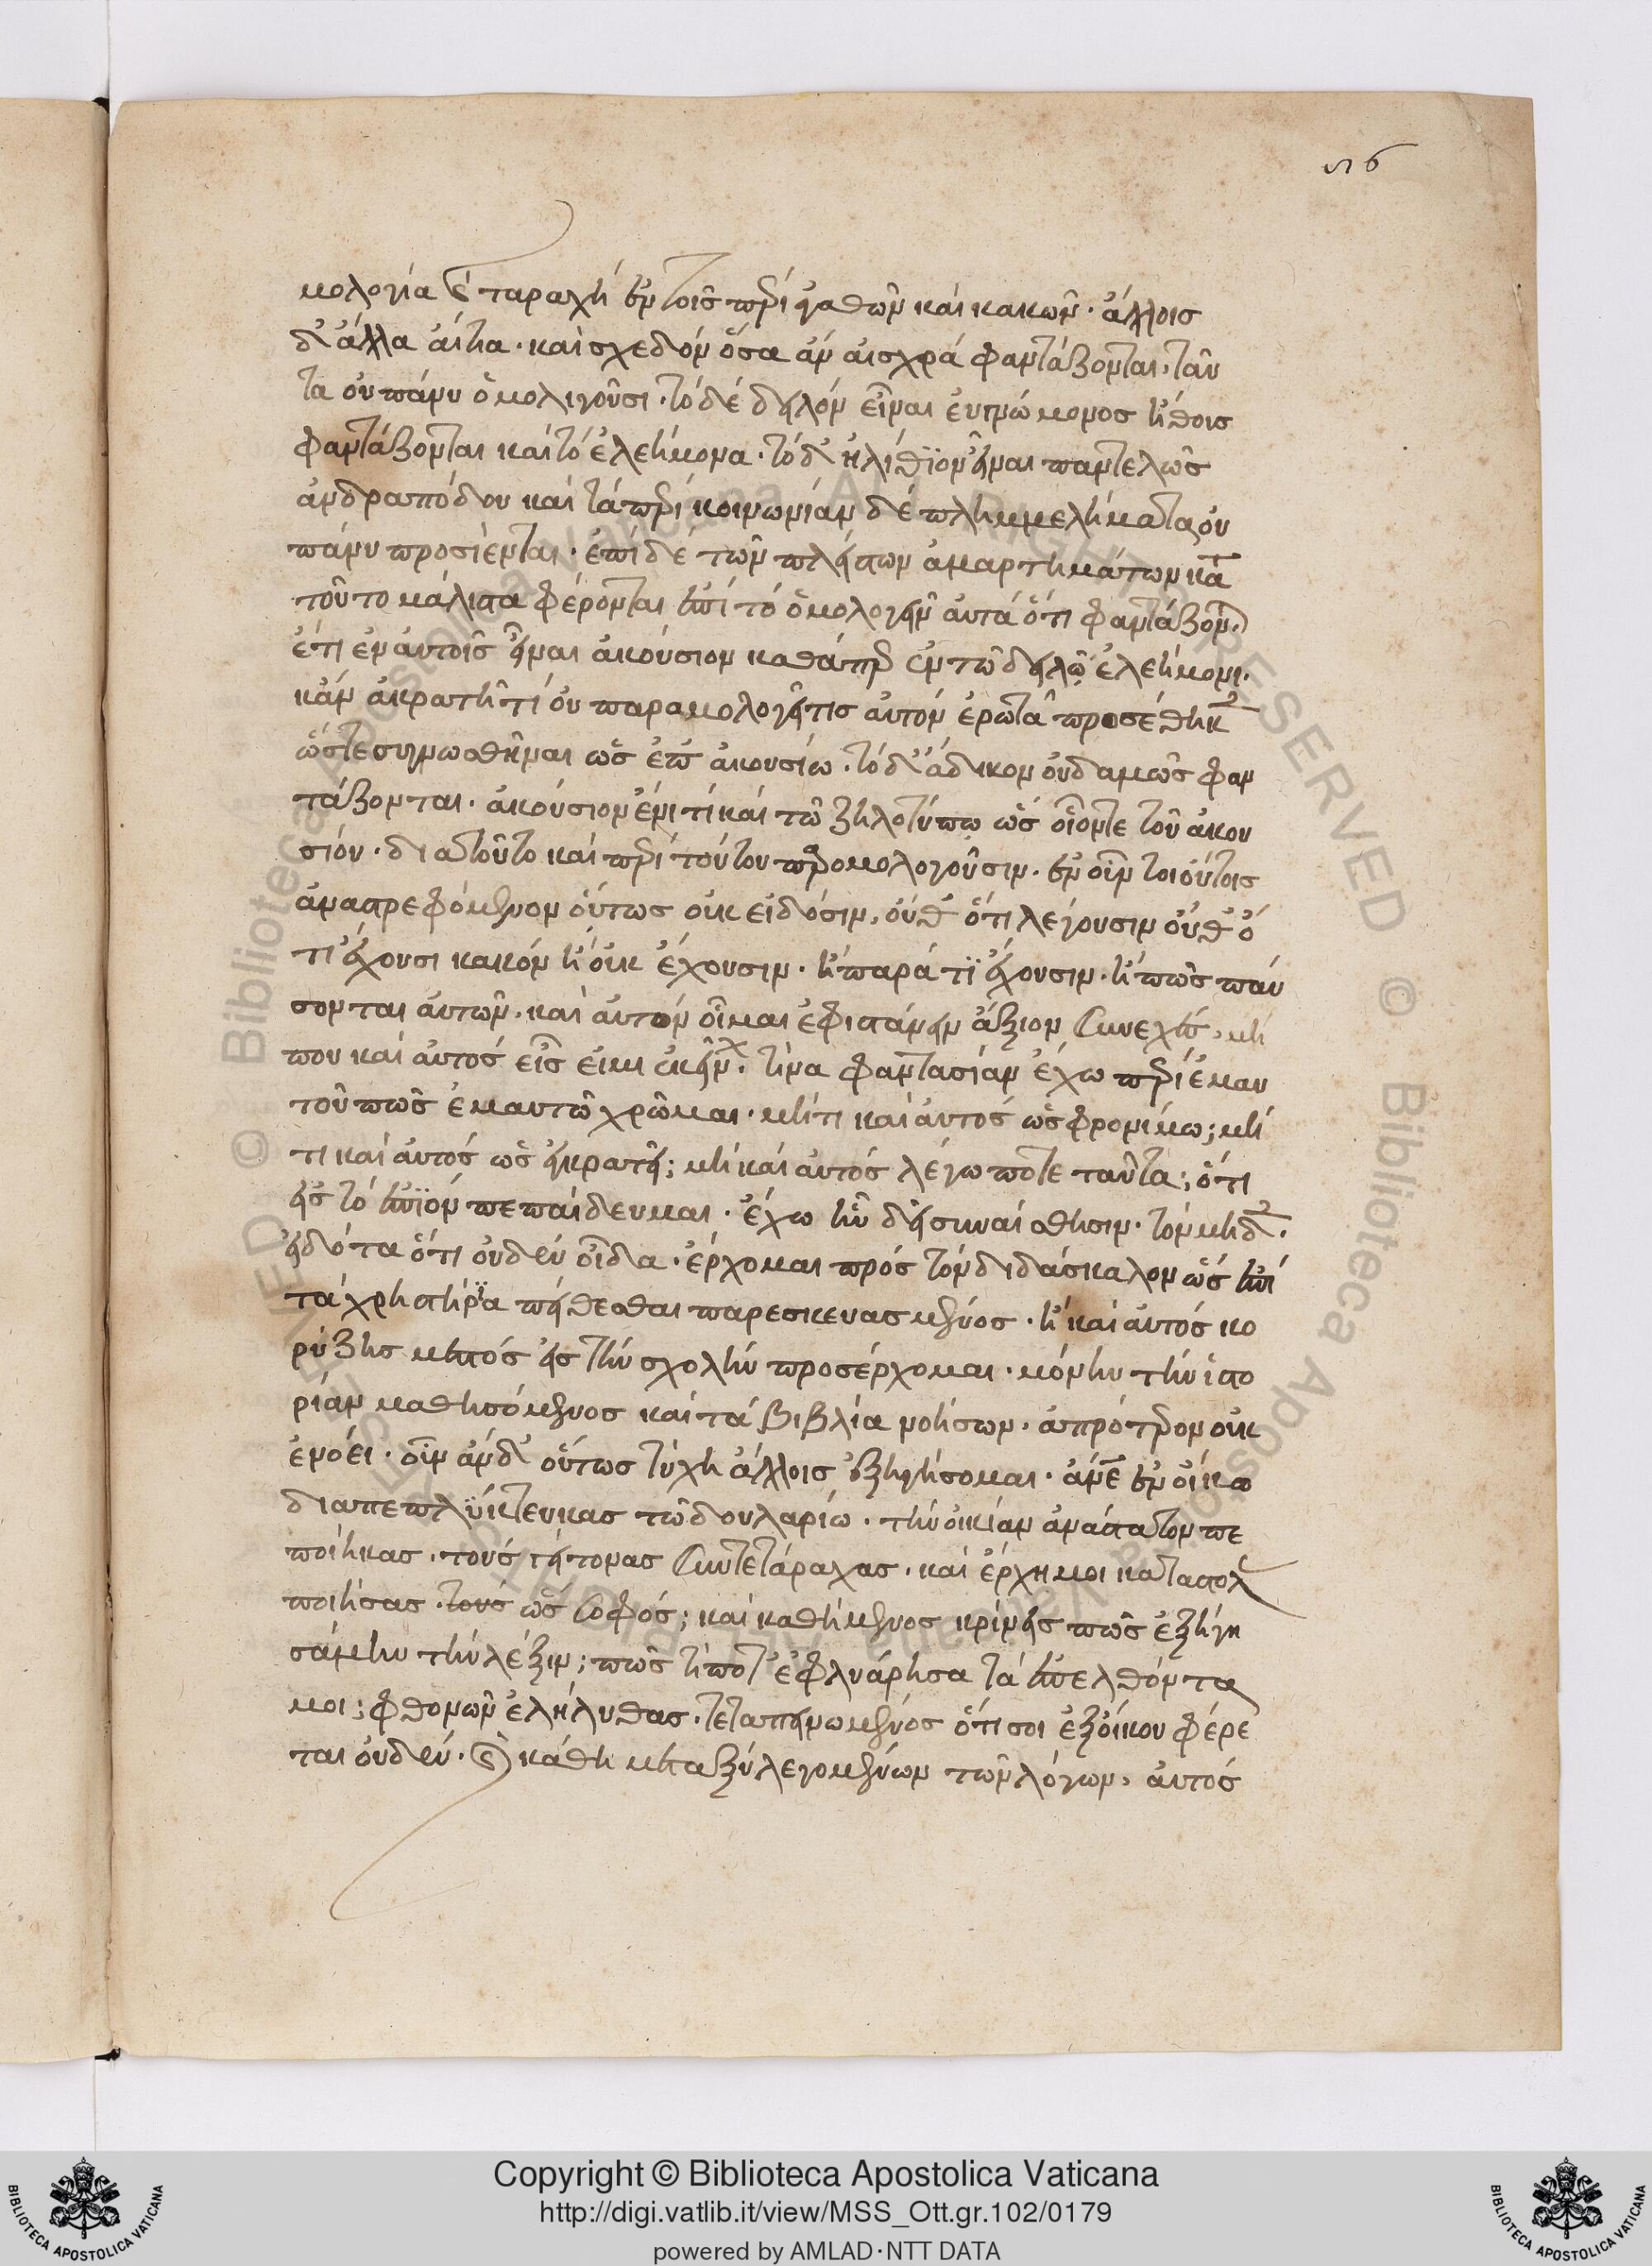 μολογία καὶ ταραχὴ ἐν τοῖς περὶ ἀγαθῶν καὶ κακῶν. ἄλλοις
δ' ἄλλα αἴτια. καὶ σχεδὸν ὅσα ἂν αἰσχρὰ φαντάζονται, ταῦ
τα οὐ πάνυ ὁμολογοῦσι. τὸ δὲ δηλὸν εἶναι εὐγνώμονος ἤθους
φαντάζονται καὶ τὸ ἐλεήμονα. τὸ δ' ἠλίθϊον εἶναι παντελῶς
ἀνδραπόδου καὶ τὰ περὶ κοινωνίαν δὲ πλημμελήματα οὐ
πάνυ προσίενται. ἐπὶ δὲ τῶν πλείστων ἁμαρτημάτων κατὰ
τοῦτο μάλιστα φέρονται ἐπὶ τὸ ὁμολογεῖν αὐτὰ ὅτι φαντάζον
ἔτι ἐν αὐτοῖς εἶναι ἀκούσιον καθάπερ ἐν τῷ δηλῷ ἐλεήμονι.
κἂν ἀκρατῆ τί οὐ παρομολογῇ τις αὐτὸν ἔρωτα προσέθηκ
ὥστε συγνωσθῆναι ὡς ἐπ' ἀκουσίω. τὸ δ' ἄδικον οὐδαμῶς φαν
τάζονται. ἀκούσιον ἔνι τί καὶ τῷ ζηλοτύπῳ ὡς οἴονται τοῦ ἀκου
σίου. διατοῦτο καὶ περὶ τούτου παρομολογοῦσιν. ἐν οὖν τοιούτοις
ἀναστρεφόμενον οὕτως οὐκ εἰδόσιν, οὔθ' ὅτι λέγουσιν οὔθ' ὅ
τι ἔχουσι κακὸν ἢ οὐκ ἔχουσιν. ἢ παρὰ τῒ ἔχουσιν. ἢ πῶς παύ
σονται αὐτῶν. καὶ αὐτὸν οἶμαι ἐφιστάνειν ἄξιον συνεχὲς, μή
που καὶ αὐτὸς εἷς εἰμι ἐκείνων. τίνα φαντασίαν ἔχω περὶ ἐμαυ
τοῦ πῶς ἐμαυτῷ χρῶμαι. μήτι καὶ αὐτὸς ὡς φρονίμω; μή
τι καὶ αὐτὸς ὡς ἐγκρατεῖ; μὴ καὶ αὐτὸς λέγω ποτε ταῦτα; ὅτι
εἰς τὸ ἐπϊὸν πεπαίδευμαι. ἔχω ἣν δεῖ συναίσθησιν. τὸν μηδ.
εἰδότα ὅτι οὐδὲν οἶδα. ἔρχομαι πρὸς τὸν διδάσκαλον ὡς ἐπὶ
τὰ χρηστήρϊα πείθεσθαι παρεσκευασμένος. ἢ καὶ αὐτὸς κο
ρύζης μεστὸς εἰς τὴν σχολὴν προσέρχομαι. μόνην τὴν ἱστο
ρίαν μαθησόμενος καὶ τὰ βιβλία νοήσων. ἃ πρότερον οὐκ
ἐνόει. οἷν ἂν δ' οὕτως τύχη ἄλλοις ἐξηγήσομαι. ἄνθρωπε ἐν οἴκῳ
διαπεπλϋκτευκας τῷ δουλαρίω. τὴν οἰκίαν ἀνάστατον πε
ποίηκας. τοὺς γείτονας συντετάραχας. καὶ ἔρχη μοι καταστολ
ποιήσας. τους ὡς σοφός; καὶ καθήμενος κρίνεις πῶς ἐξηγη
σάμην τὴν λέξιν; πῶς τί ποτ' ἐφλυάρησα τὰ ἐπελθόντα
μοι; φθονῶν ἐλήλυθας. τεταπεινωμένος ὅτι σοι ἐξοίκου φέρε
ται οὐδὲν. καὶ κάθη μεταξὺ λεγομένων τῶν λόγων, αὐτὸς
Copyright © Biblioteca Apostolica Vaticana
http://digi.vatlib.it/view/MSS_Ott.gr.102/0179
powered by AMLAD·NTT DATA